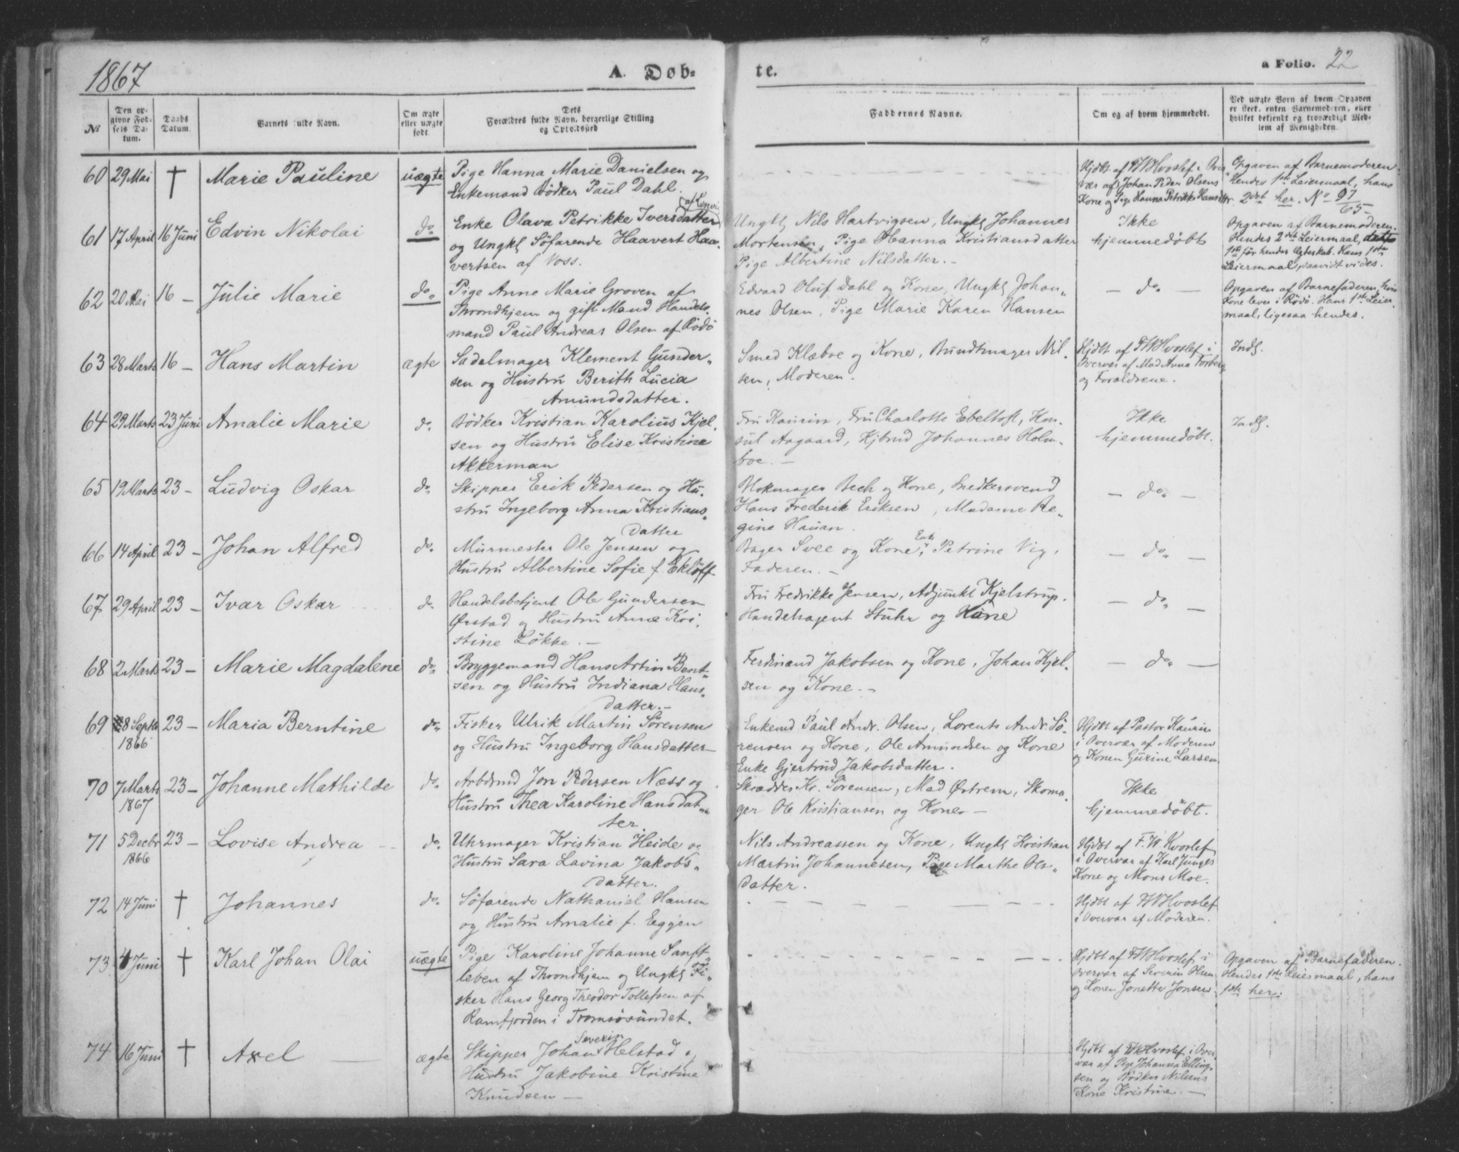 1867
A. Døb-
te.
a Folio. 22
№
Den op-
givne Fød-
sels Da-
tum.
Daabs
Datum.
Barnets fulde Navn.
Om ægte
eller uægte
født.
Dets
Forældres fulde Navn, borgerlige Stilling
og Opholdssted
Faddernes Navne.
Om og af hvem hjemmedøbt.
Ved uægte Børn af hvem Opgaven
er skeet, enten Barnemoderen, eller
hvilket bekjendt og troværdigt Med-
lem af Menigheden.
60 29 Mai † Marie Pauline uægte
Pige Hanna Marie Danielsen og
Enkemand Bødker Paul Dahl.
Hjdbt af FWHvoslef i Over-
vær af Johan Peder Olsens
Kone og Pige Hanna Petrikke
Opgaven af Barnemoderen.
Hendes 1ste Leiermaal, hans
2det her. No 97/65
61 17 April 16 Juni Edvin Nikolai do
Enke Olava Petrikke Iversdatter
og Ungkl Søfarende Haavert Haa-
vertsen af Voss.
Ungkl Nils Hartvigsen, Ungkl Johannes
Mortensen, Pige Hanna Kristiansdatter
Pige Albertine Nilsdatter.-
Ikke
hjemmedøbt
Opgaven af Barnemoderen.
Hendes 2det Leiermaal,
1ste før hendes Egteskab. Hans 1ste
Leiermaal, saavidt vides.
62 20 Mai 16 - Julie Marie do.
Pige Anne Marie Groven af
Throndhjem og gift Mand Handels-
mand Paul Andreas Olsen af Rødø
Edvard Oluf Dahl og Kone, Ungkl Johan-
nes Olsen, Pige Marie Karen Hansen
- do. -
Opgaven af Barnefaderen,
Kone lever i Rødø. Hans 1ste Leier-
maal, ligesaa hendes.
63 28 Marts 16 - Hans Martin ægte
Sadelmager Klement Gunder-
sen og Hustru Berith Lucia
Amundsdatter.
Smed Klæboe og Kone, Bundtmager Nil-
sen, Moderen.
Hjdbt af FWHvoslef i
Overvær af Mad Anna
og Forældrene.
Indf.
64 29 Marts 23 Juni Amalie Marie do.
Bødker Kristian Karolius Kjel-
sen og Hustru Elise Kristine
Akkerman
Fru Hauan, Fru Charlotte Ebeltoft, Kon-
sul Aagaard, Kjbmd Johannes Holm-
boe. -
Ikke
hjemmedøbt.
Indf.
65 19 Marts 23 - Ludvig Oskar do
Skipper Erik Pedersen og Hu-
stru Ingeborg Anna Kristians-
datter
Blokmager Bech og Kone, Snedkersvend
Hans Frederik Eriksen, Madame Re-
gine Hauan.
- do. -
66 14 April 23 - Johan Alfred do.
Murmester Ole Jensen og
Hustru Albertine Sofie f. Ekløff
Bager Svee og Kone, Enk Petrine Vig,
Faderen. -
- do. -
67 29 April 23 - Ivar Oskar do
Handelsbetjent Ole Gundersen
Ørstad og Hustru Anne Kri-
stine Løkke. -
Fru Fredrikke Jensen, Adjunkt Kjelstrup.
Handelsagent Stuhr og Kone
- do. -
68 2 Marts 23 - Marie Magdalene do.
Bryggemand Hans Artin Bent-
sen og Hustru Indiana Hans-
datter. -
Ferdinand Jakobsen og Kone, Johan Kjel-
sen og Kone. -
- do. -
69 8 Septb
1866 23 - Maria Berntine do.
Fisker Ulrik Martin Sørensen
og Hustru Ingeborg Hansdatter -
Enkemd Paul Andr. Olsen, Lorents Andr. Sø-
rensen og Kone, Ole Amundsen og Kone
Enke Gjertrud Jakobsdatter.
Hjdbt af Pastor Kaurin
i Overvær af Moderen
og Konen Gurine Larsen
70 7 Marts
1867 23 - Johanne Mathilde do.
Arbdmd Jon Pedersen Næss og
Hustru Thea Karoline Hansdat-
ter
Skrædder K. Sørensen, Mad Østrem, Skoma-
ger Ole Kristiansen og Kone. -
Ikke
hjemmedøbt.
71 5 Decbr
1866 23 - Lovise Andrea - - do.
Uhrmager Kristian Heide og
Hustru Sara Lavina Jakobs-
datter.
Nils Andreassen og Kone, Ungkl Kristian
Martin Johannesen, Pige Marthe Ols-
datter.
Hjdbt af F. W. Hvoslef
i Overvær af Karl Junges
Kone og Mons Moe.
72 14 Juni † Johannes do.
Søfarende Nathaniel Hansen
og Hustru Amalie f. Eggen
Hjdbt af FWHvoslef
i Overvær af Moderen.
73 4 Juni † Karl Johan Olai uægte
Pige Karoline Johanne Sanft-
leben af Throndhjem og Ungkl Fi-
sker Hans Georg Theodor Tollefsen af
Ramfjorden i Tromsøsundet.
Hjdbt af FWHvoslef i
Overvær af Severin Olsen
og Konen Jonette Jonsen
Opgaven af Barnefaderen.
Hendes 1ste Leiermaal, hans
1ste her.
74 16 Juni † Axel ægte
Skipper Johan Severin Helstad og
Hustru Jakobine Kristine
Knudsen -
Hjdbt af FWHvoslef i Over-
vær af Pige Johanna Elling-
sen og Bødker Nilsens
Kone Kristine. -